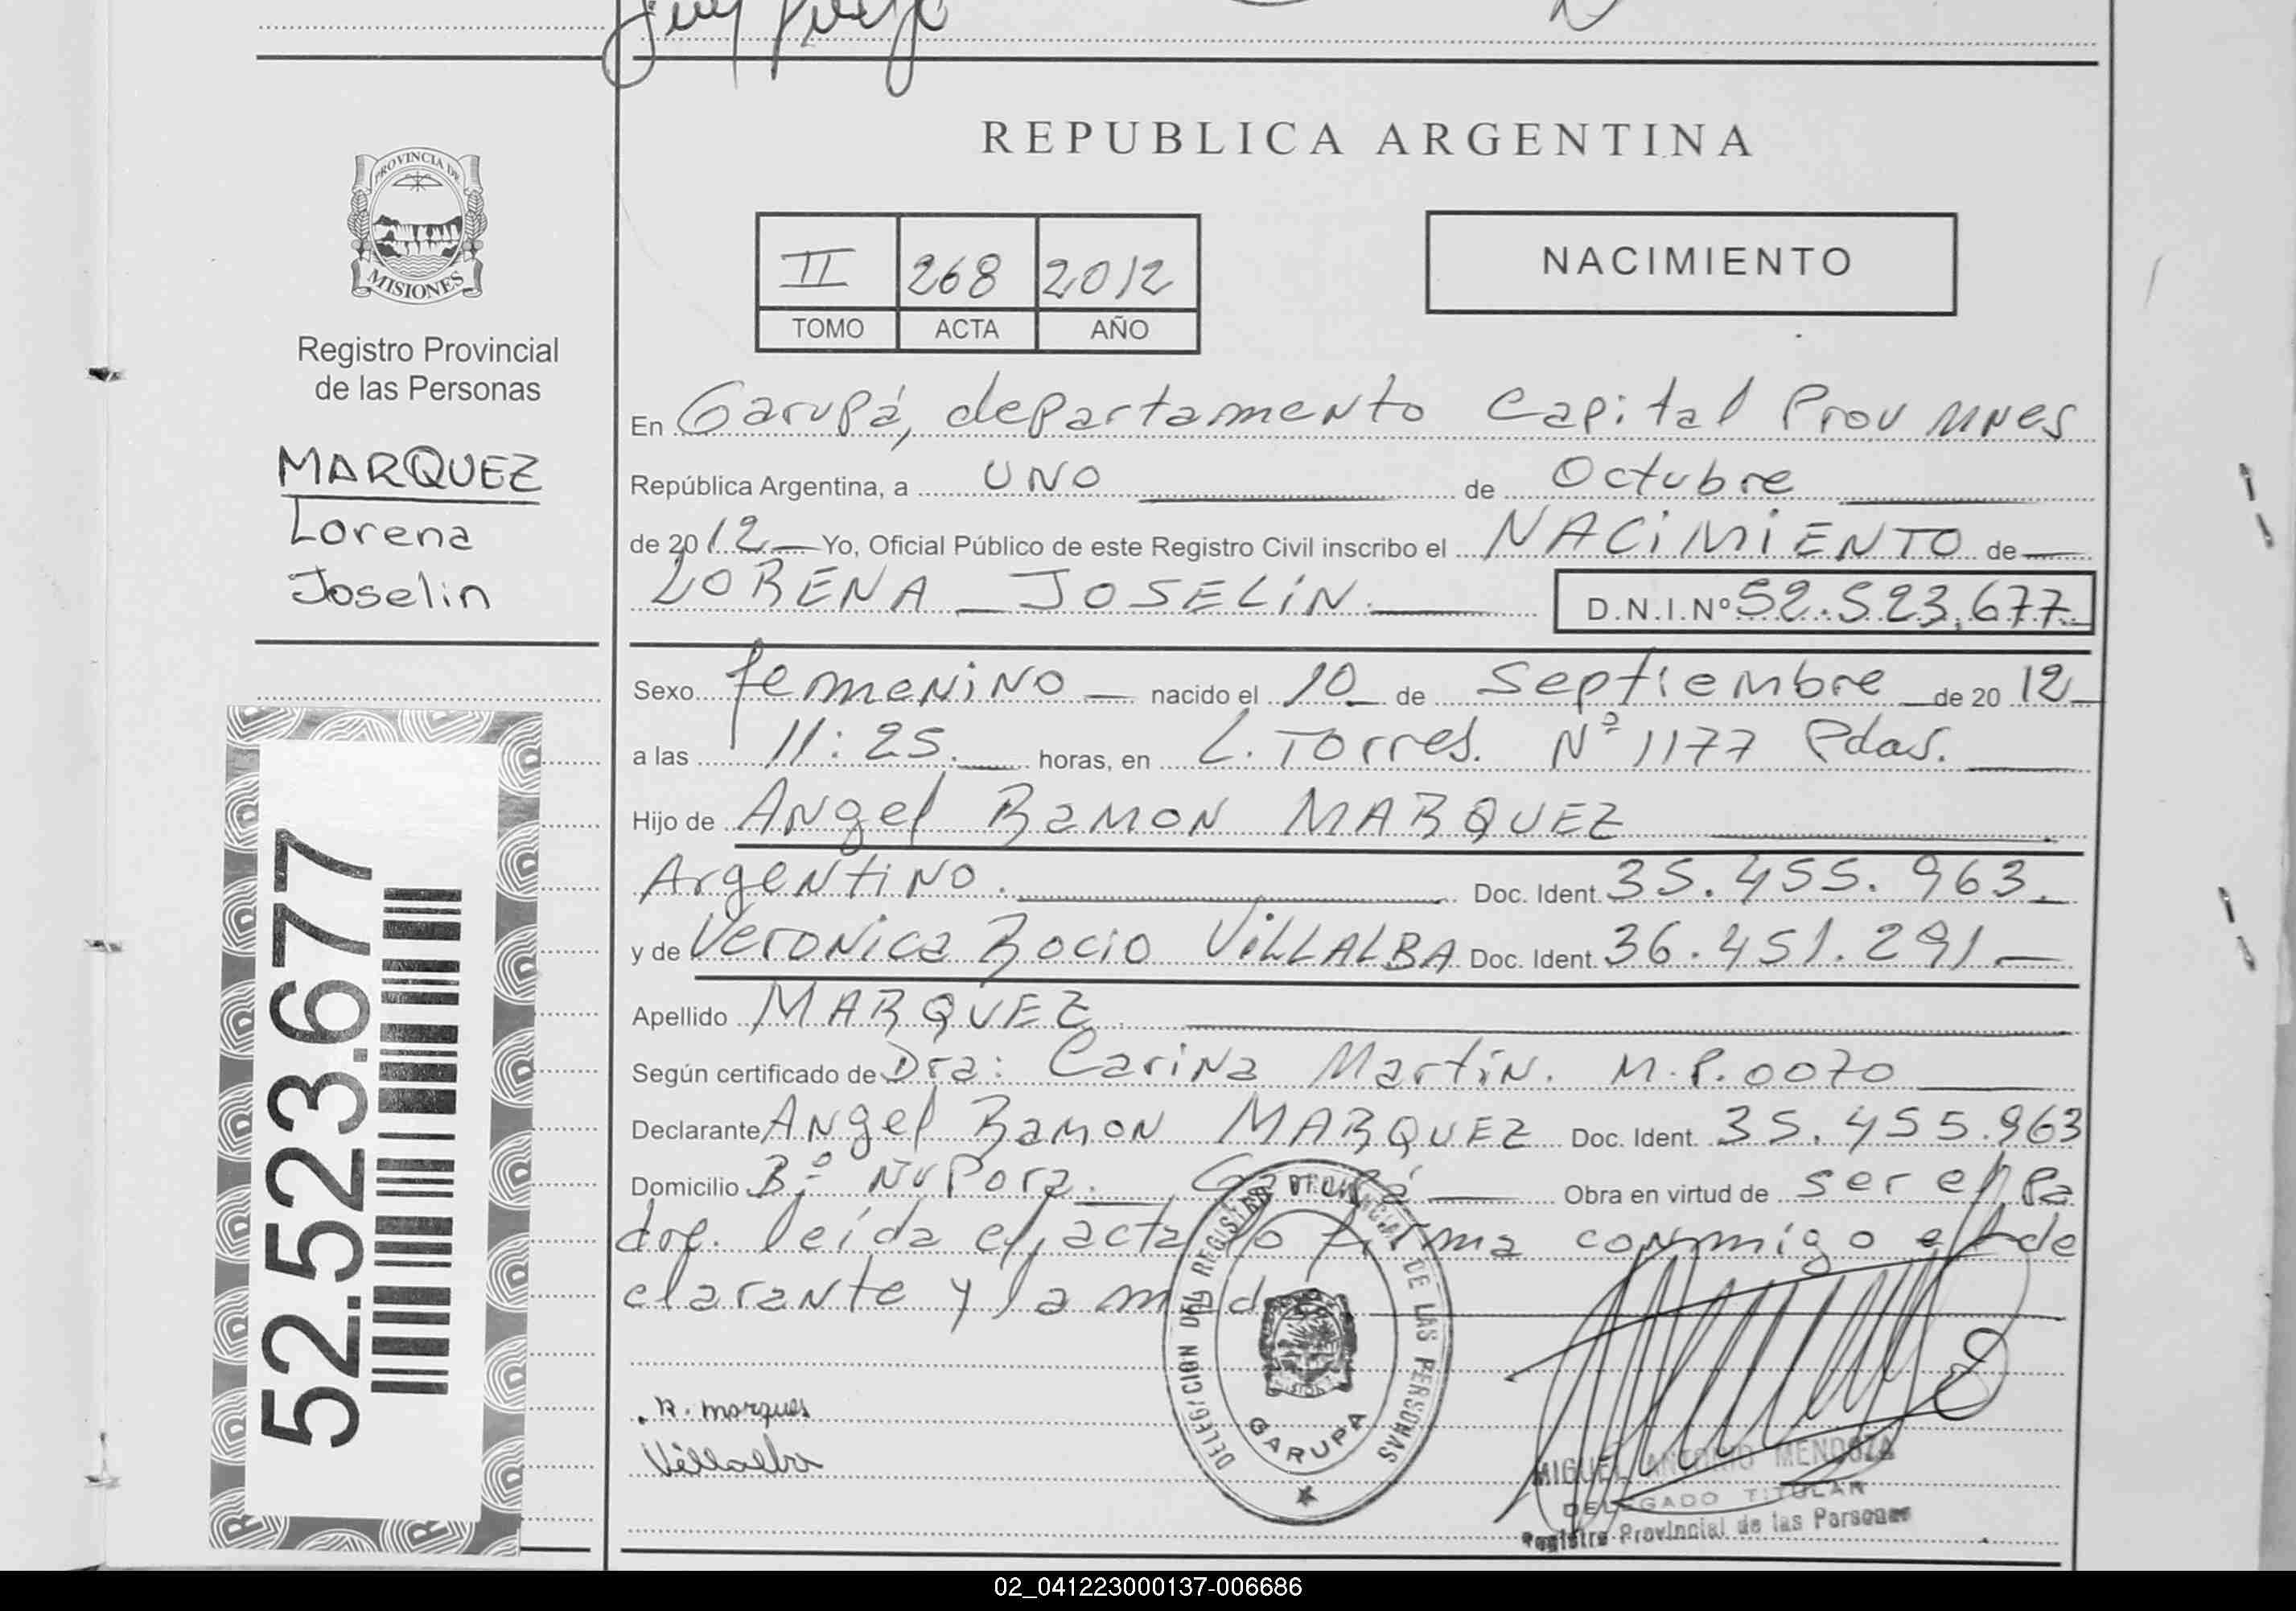 REPUBLICA ARGENTINA
PROVINCIA DE
MISIONES
Registro Provincial
de las Personas
MARQUEZ
Lorena
Joselin
52.523.677
II 268 2012
TOMO ACTA AÑO
NACIMIENTO
En Garupá, departamento Capital Prov Mnes
República Argentina, a UNO de Octubre
de 2012 Yo, Oficial Público de este Registro Civil inscribo el NACIMIENTO de
LORENA JOSELIN. D.N.I.Nº 52.523.677
Sexo femenino nacido el 10 de Septiembre de 2012
a las 11:25. horas, en L. Torres. Nº 1177 Pdas.
Hijo de Angel Ramon MARQUEZ
Argentino. Doc. Ident. 35.455.963.
y de Veronica Rocio VILLALBA Doc. Ident. 36.451.291
Apellido MARQUEZ.
Según certificado de Dra: Carina Martin. M.P.0070
Declarante Angel Ramon MARQUEZ Doc. Ident. 35.455.963
Domicilio Bº Ñu Pora. Garupá Obra en virtud de ser el Pa
dre. leída el acta la firma conmigo el de
clarante y la madre
R. marques
Villalba
DELEGACION DEL REGISTRO PROVINCIAL DE LAS PERSONAS
GARUPA
MIGUEL ANTONIO MENDOZA
DELEGADO TITULAR
Registro Provincial de las Personas
02_041223000137-006686